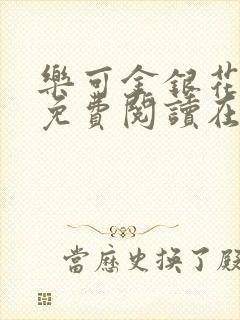 樂可金銀花
免費閱讀在
當歷史換了殿